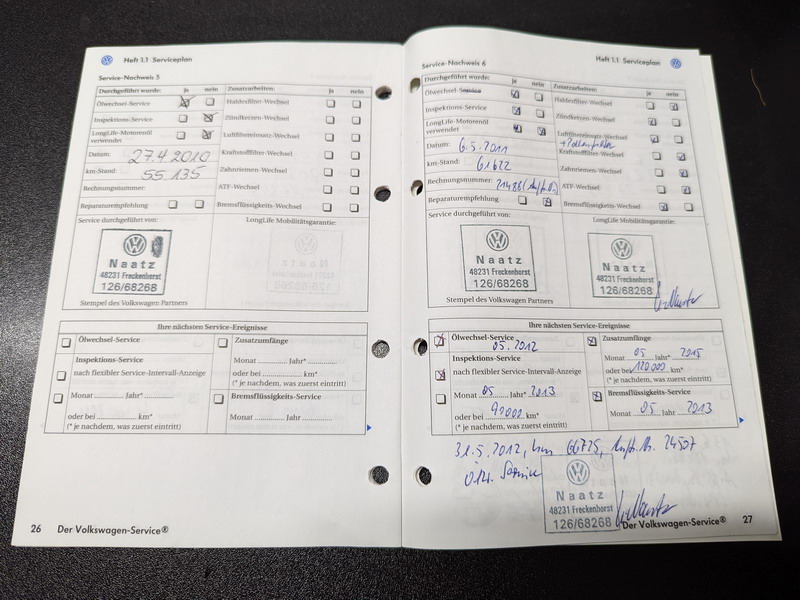 Heft 1.1 Serviceplan
Service-Nachweis 5
Durchgeführt wurde: ja nein Zusatzarbeiten: ja nein
Ölwechsel-Service Haldexfilter-Wechsel
Inspektions-Service Zündkerzen-Wechsel
LongLife-Motorenöl
verwendet
Luftfiltereinsatz-Wechsel
Datum: 27.4.2010 Kraftstofffilter-Wechsel
km-Stand: 55135 Zahnriemen-Wechsel
Rechnungsnummer: ATF-Wechsel
Reparaturempfehlung Bremsflüssigkeits-Wechsel
Service durchgeführt von: LongLife Mobilitätsgarantie:
Naatz
48231 Freckenhorst
126/68268
Stempel des Volkswagen Partners
Ihre nächsten Service-Ereignisse
Ölwechsel-Service Zusatzumfänge
Inspektions-Service Monat ............. Jahr* .............
nach flexibler Service-Intervall-Anzeige oder bei ............. km*
(* je nachdem, was zuerst eintritt)
Monat ............. Jahr* ............. Bremsflüssigkeits-Service
oder bei ............. km* Monat ............. Jahr .............
(* je nachdem, was zuerst eintritt)
26 Der Volkswagen-Service®
Heft 1.1 Serviceplan
Service-Nachweis 6
Durchgeführt wurde: ja nein Zusatzarbeiten: ja nein
Ölwechsel-Service Haldexfilter-Wechsel
Inspektions-Service Zündkerzen-Wechsel
LongLife-Motorenöl
verwendet
Luftfiltereinsatz-Wechsel
+Pollenfilter
Datum: 6.5.2011 Kraftstofffilter-Wechsel
km-Stand: 61622 Zahnriemen-Wechsel
Rechnungsnummer: ATF-Wechsel
Reparaturempfehlung Bremsflüssigkeits-Wechsel
Service durchgeführt von: LongLife Mobilitätsgarantie:
Naatz
48231 Freckenhorst
126/68268
Naatz
48231 Freckenhorst
126/68268
Stempel des Volkswagen Partners
Ihre nächsten Service-Ereignisse
Ölwechsel-Service Zusatzumfänge
05.2012
Inspektions-Service Monat 05 Jahr* 2015
nach flexibler Service-Intervall-Anzeige oder bei 120000 km*
(* je nachdem, was zuerst eintritt)
Monat 05 Jahr* 2013 Bremsflüssigkeits-Service
oder bei 90000 km* Monat 05 Jahr 2013
(* je nachdem, was zuerst eintritt)
31.5.2012, km 66725, 24507
Service
Naatz
48231 Freckenhorst
126/68268
Der Volkswagen-Service® 27